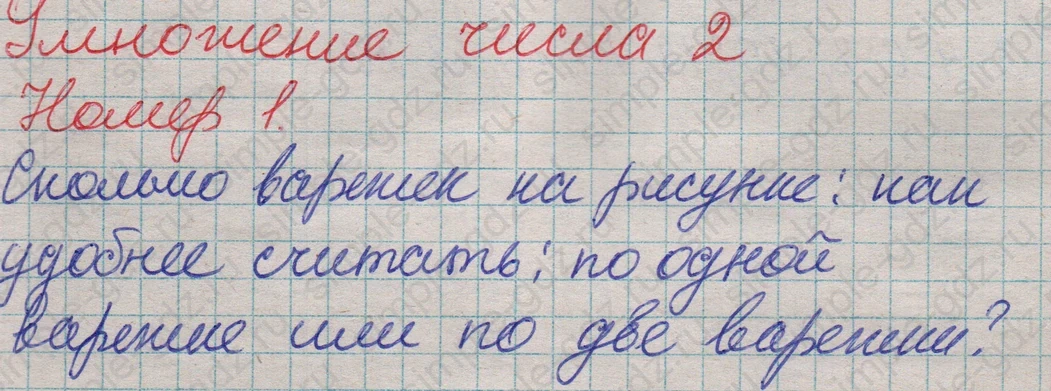 Умножение числа 2
Номер 1.
Сколько варежек на рисунке: как
удобнее считать: по одной
варежке или по две варежки?